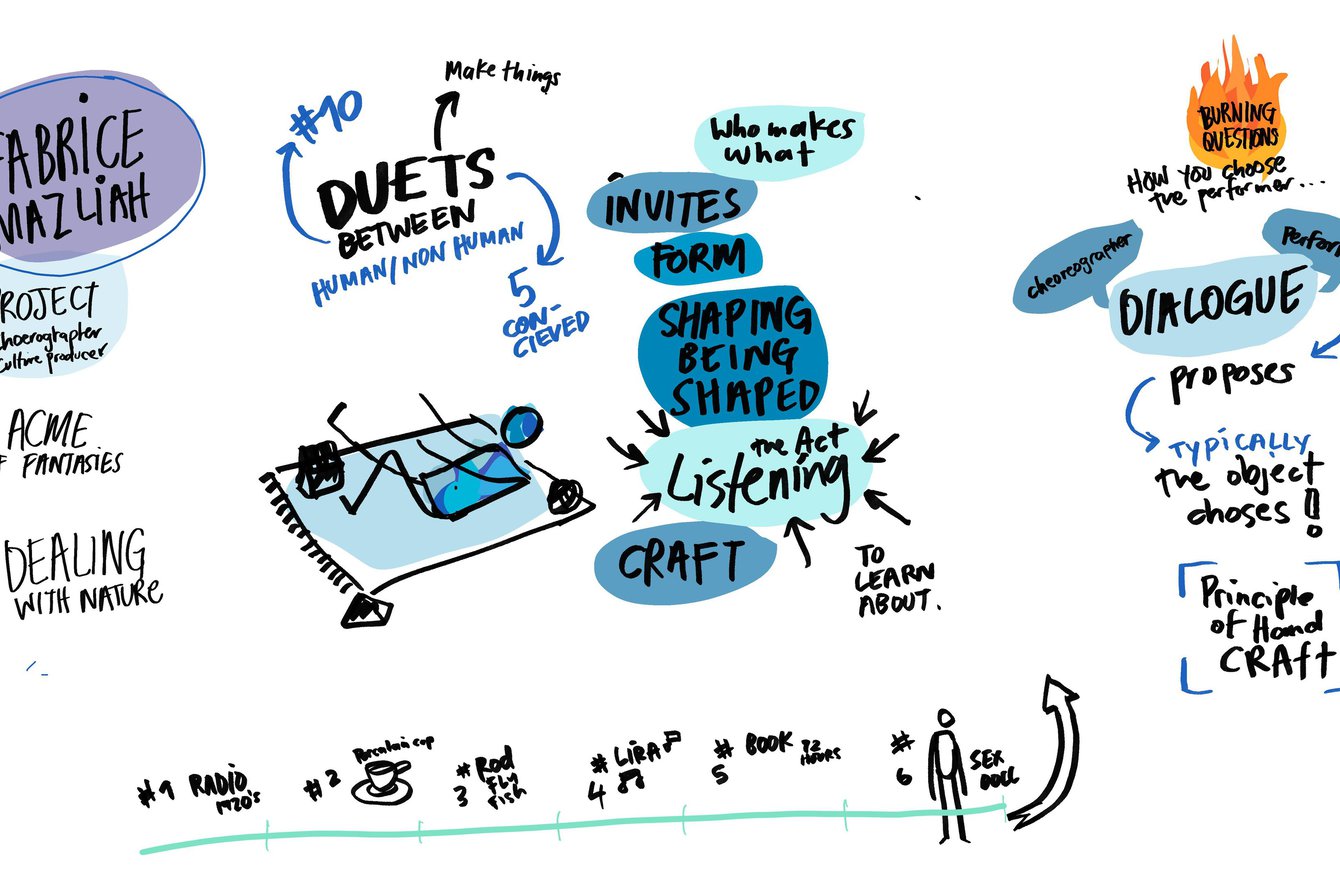 FABRICE
MAZLIAH
PROJECT
choerographer
culture producer
ACME
OF FANTASIES
DEALING
WITH NATURE
#10
Make things
DUETS
BETWEEN
HUMAN/NON HUMAN
5
CON-
CIEVED
Who makes
what
INVITES
FORM
SHAPING
BEING
SHAPED
the Act
Listening
CRAFT
TO
LEARN
ABOUT.
BURNING
QUESTIONS
HOW YOU choose
the performer...
cheoreographer
Perform
DIALOGUE
proposes
TYPICALLY
the object
choses!
Principle
of Hand
CRAft
#1 RADIO
1920's
#2 Porcelain cup
#3 Rod
Fly
fish
#4 LiRA
#5 BOOK 72
HOURS
#6 SEX
DOLL